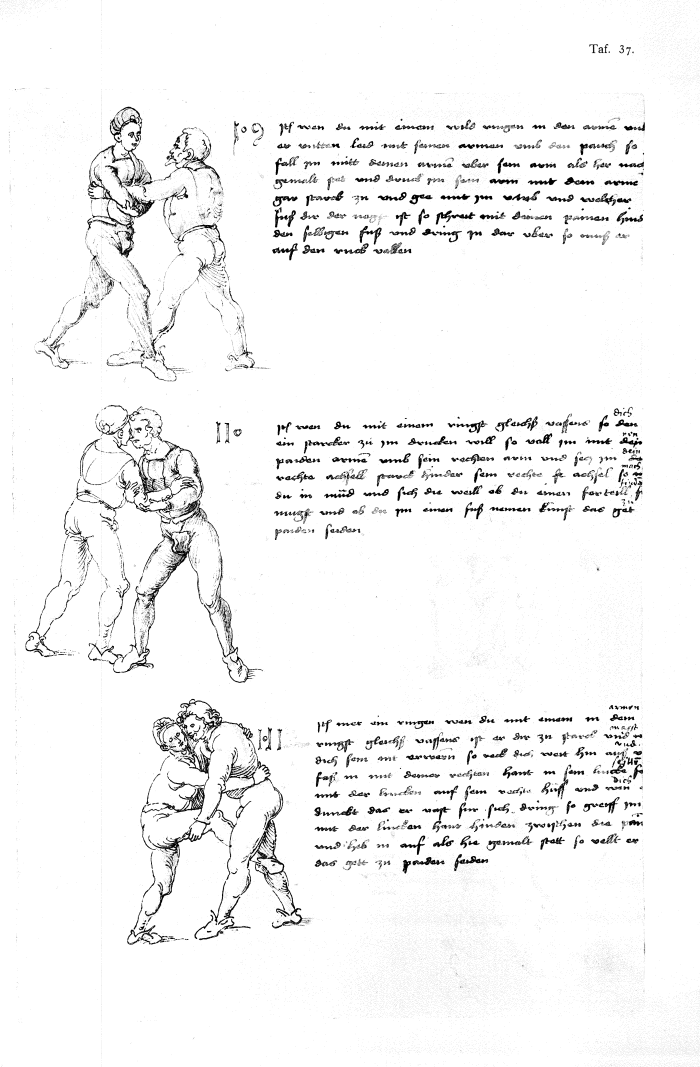 Taf. 37.
109
Itꝫ wen du mit einem wild ringen in den armē
er untten leid mit seinen armen umb den pauch so
fall im mitt deinen armē uber sein arm als her nach
gemalt stet und druck im sein arm mit dein arme
gar starck zu und gee mit im umb und welcher
fuß dir der nagst ist so schreit mit deinen painen hind
den selbigen fuß und dring in dar uber so muß er
auff den ruck vallen
110
Itꝫ wen du mit einem ringst gleichß vassens so
dich
ein starcker zu im drucken will so vall im mit
paiden armē umb sein rechten arm und secz im
dein
rechte achsell starck hinder sein rechte achsel so
du in müd und sich die weill ob du einen forteill
mugst und ob du im einen fuß nemen künst das get
paiden seiden
111
Itꝫ mer ein ringen wen du mit einem in dem
armen
ringst gleichß vassens ist er dir zu starck und
magst
dich sein nit erwern so reck dich weit hin auß
und
faß in mit deiner rechten hant in sein lincke
mit der lincken auf sein rechte hüff und wen
dich
dunckt das er vast für sich dring so greiff im
mit der lincken hant hinden zwischen die pain
und heb in auf als hie gemalt stett so vellt er
das gett zu paiden seiden